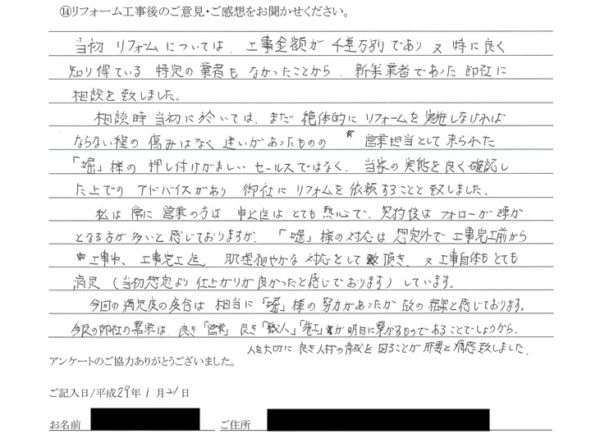 ⑭リフォーム工事後のご意見・ご感想をお聞かせください。
当初 リフォームについては、工事金額が 千差万別であり 又 特に良く
知り得ている 特定の業者も なかったことから、新築業者であった 御社に
相談を致しました。
相談時 当初に於いては、まだ 絶体的に リフォームを 実施しなければ
ならない程の 傷みはなく 迷いがあったものの 営業担当として 来られた
「堀」様の 押し付けがましい セールスではなく、当家の 実態を 良く 確認し
た上での アドバイスがあり 御社に リフォームを 依頼することと 致しました。
私は 常に 営業の方は 申込迄は とても 熱心で、契約後は フォローが 疎か
となる方が 多いと 感じておりますが、「堀」様の 対応は 想定外で 工事完工前から
工事中、工事完工迄 肌理細やかな 対応をして 頂き、又 工事自体も とても
満足(当初想定より 仕上がりが 良かったと 感じております)しています。
今回の 満足度の 度合は 相当に「堀」様の 努力があったが 故の 結果と 感じております。
今後の 御社の 繁栄は 良き「営業」良き「職人」「完工」が 明日に 繋がるものであることでしょうから、
人を大切に 良き人材の 育成を 図ることが 肝要と 痛感致しました。
アンケートのご協力ありがとうございました。
ご記入日/平成29年 1月 21日
お名前 ご住所